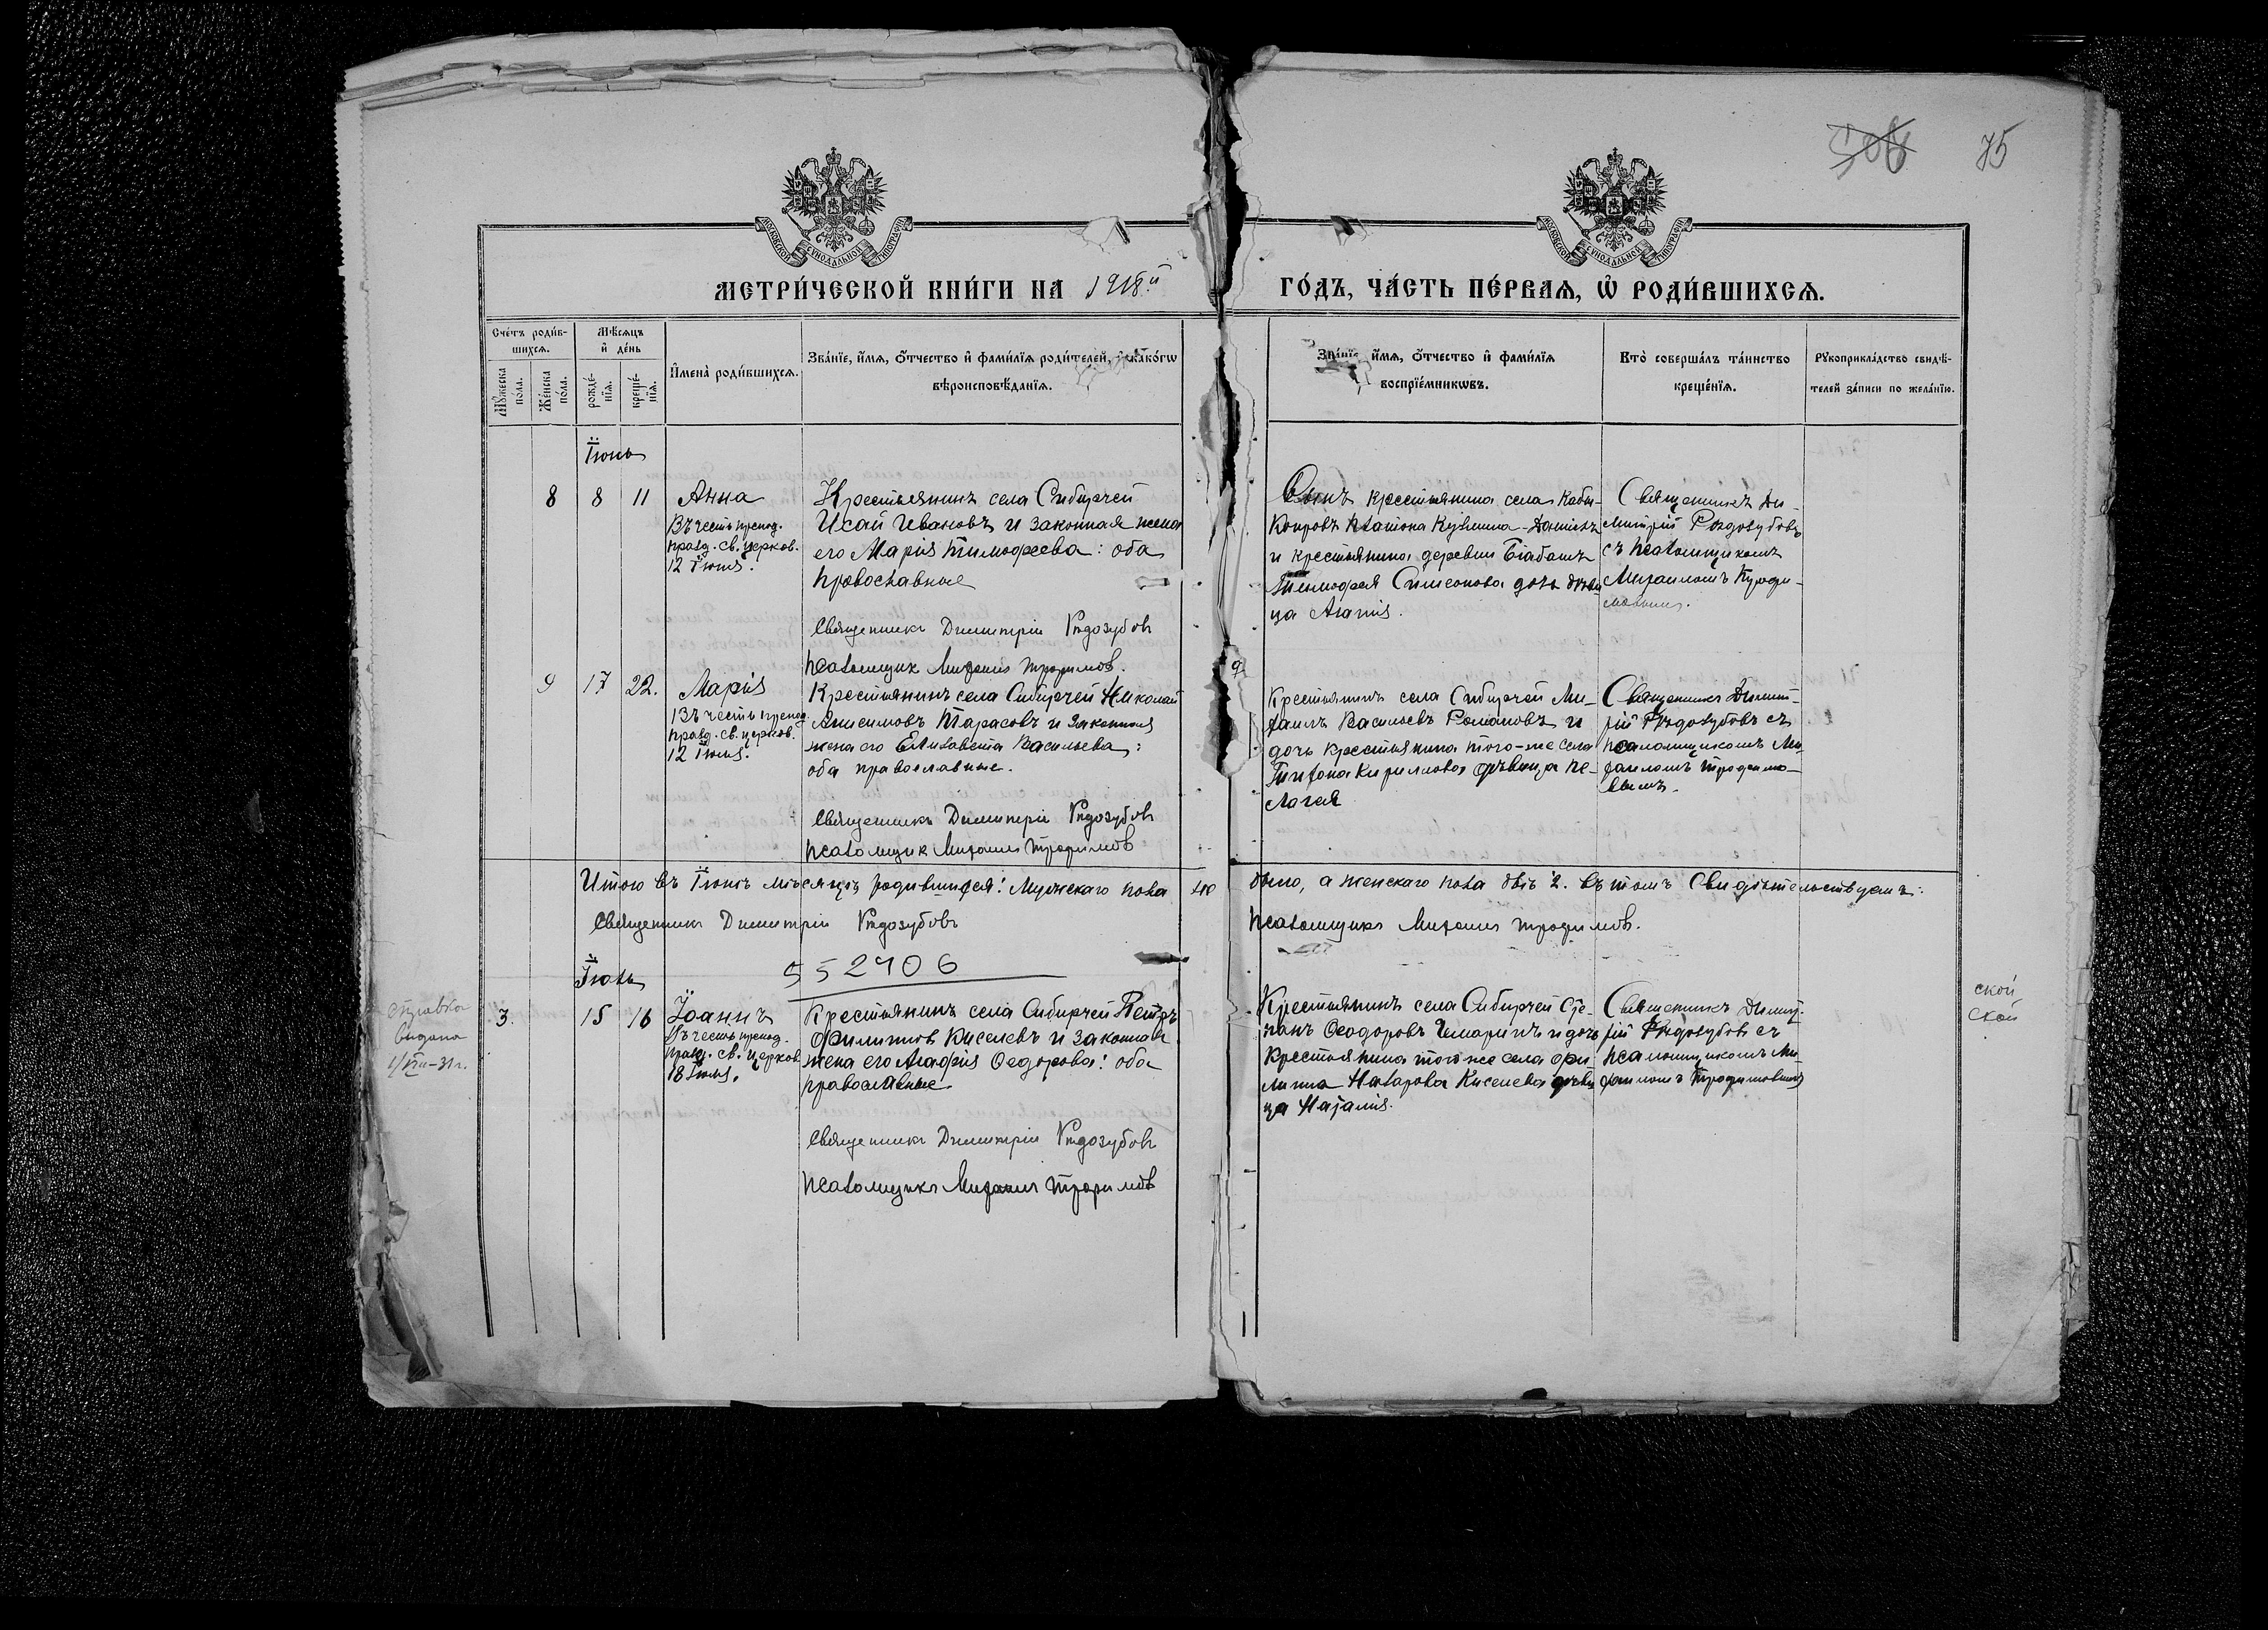 75
МОСКОВСКОЙ СѴНОДАЛЬНОЙ ТИПОГРАФІИ
МОСКОВСКОЙ СѴНОДАЛЬНОЙ ТИПОГРАФІИ
МЕТРИ́ЧЕСКОЙ КНИ́ГИ НА 1918й ГО́ДЪ, ЧА́СТЬ ПЕ́РВАЯ, Ѡ҆ РОДИ́ВШИХСЯ.
Сче́тъ роди́в-
шихся.
Мꙋ́жеска по́ла.
Же́нска по́ла.
Мѣ́сяцъ
и҆ де́нь
рожде́-
нїя.
креще́-
нїя.
И҆мена̀ роди́вшихся.
Зва́нїе, и҆́мя, ѻ҆́тчество и҆ фами́лїя роди́телей, и҆ како́гѡ
вѣроисповѣ́данїя.
Зва́нїе, и҆́мя, ѻ҆́тчество и҆ фами́лїя
воспрїе́мникѡвъ.
Кто̀ соверша́лъ та́инство
креще́нїя.
Рꙋкоприкла́дство свидѣ́-
телей за́писи по жела́нїю.
Іюнь
8 8 11
Анна
Въ честь препод.
празд. св. церков.
12 Іюня.
Крестьянинъ села Сибирчей
Исай Ивановъ и законная жена
его Марія Тимофеева: оба
православные
Священникъ Димитрій Рѣдозубовъ
Псаломщикъ Михаилъ Трофимовъ.
Сынъ крестьянина села
и крестьянина деревни
Тимофея Симеонова дочь дѣви
ца
Священникъ Ди-
митрій Рѣдозубовъ
съ псаломщикомъ
Михаиломъ
9 17 22.
Марія
Въ честь препод.
празд. св. церков.
12 Іюня.
Крестьянинъ села Сибирчей Николай
Анисимовъ Тарасовъ и законная
жена его Елизавета Васильева:
оба православные.
Священникъ Димитрій Рѣдозубовъ
Псаломщикъ Михаилъ Трофимовъ
Крестьянинъ села Сибирчей Ми-
хаилъ Васильевъ Романовъ и
дочь крестьянина того-же села
Кирилова дѣвица Пе-
лагея
Священникъ Димит-
рій Рѣдозубовъ съ
псаломщикомъ Ми-
хаиломъ Трофимо-
вымъ.
Итого въ Іюнѣ мѣсяцѣ родившихся: Мужскаго пола не было, а женскаго пола двѣ 2. въ томъ свидѣтельствуемъ:
Священникъ Димитрій Рѣдозубовъ
Псаломщикъ Михаилъ Трофимовъ.
552906
Іюль
справка
выдана
3. 15 16
Іоаннъ
Въ честь препод.
празд. св. церков.
18 Іюля.
Крестьянинъ села Сибирчей Петръ
Филипповъ Киселевъ и законная
жена его Агафія Ѳедорова: оба
православные
Священникъ Димитрій Рѣдозубовъ
Псаломщикъ Михаилъ Трофимовъ
Крестьянинъ села Сибирчей Сте-
панъ Ѳеодоровъ и дочь
крестьянина того же села Фи-
липпа Киселева дѣви
ца Наталія.
Священникъ Димит-
рій Рѣдозубовъ съ
псаломщикомъ Ми-
хаиломъ Трофимовымъ
ской
ской